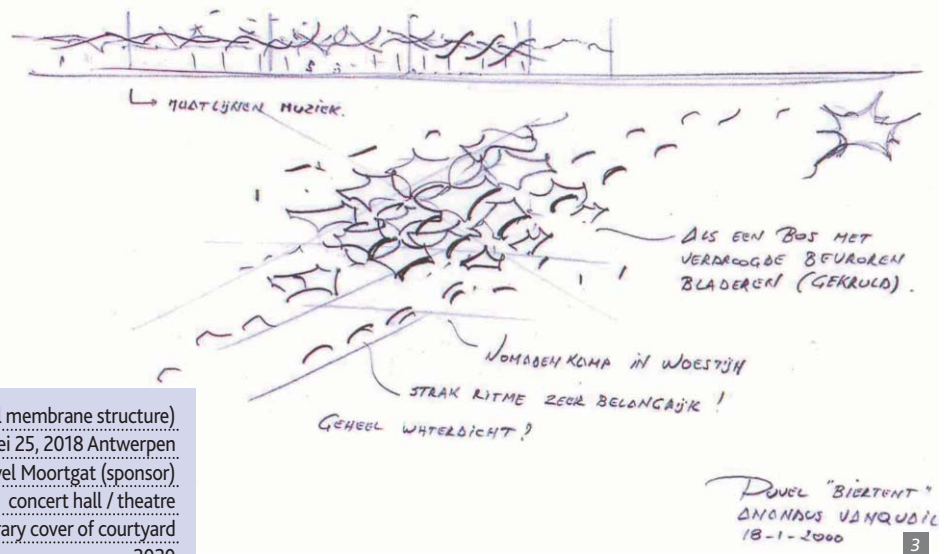 NOOTLIJNEN MUZIEK.
ALS EEN BOS MET
VERDROOGDE BEVROREN
BLADEREN (GEKRULD).
NOMADEN KAMP IN WOESTIJN
STRAK RITME ZEER BELANGRIJK !
GEHEEL WATERDICHT ?
membrane structure)
ei 25, 2018 Antwerpen
vel Moortgat (sponsor)
concert hall / theatre
rary cover of courtyard
2020
DUVEL "BIERTENT"
18-1-2000
3